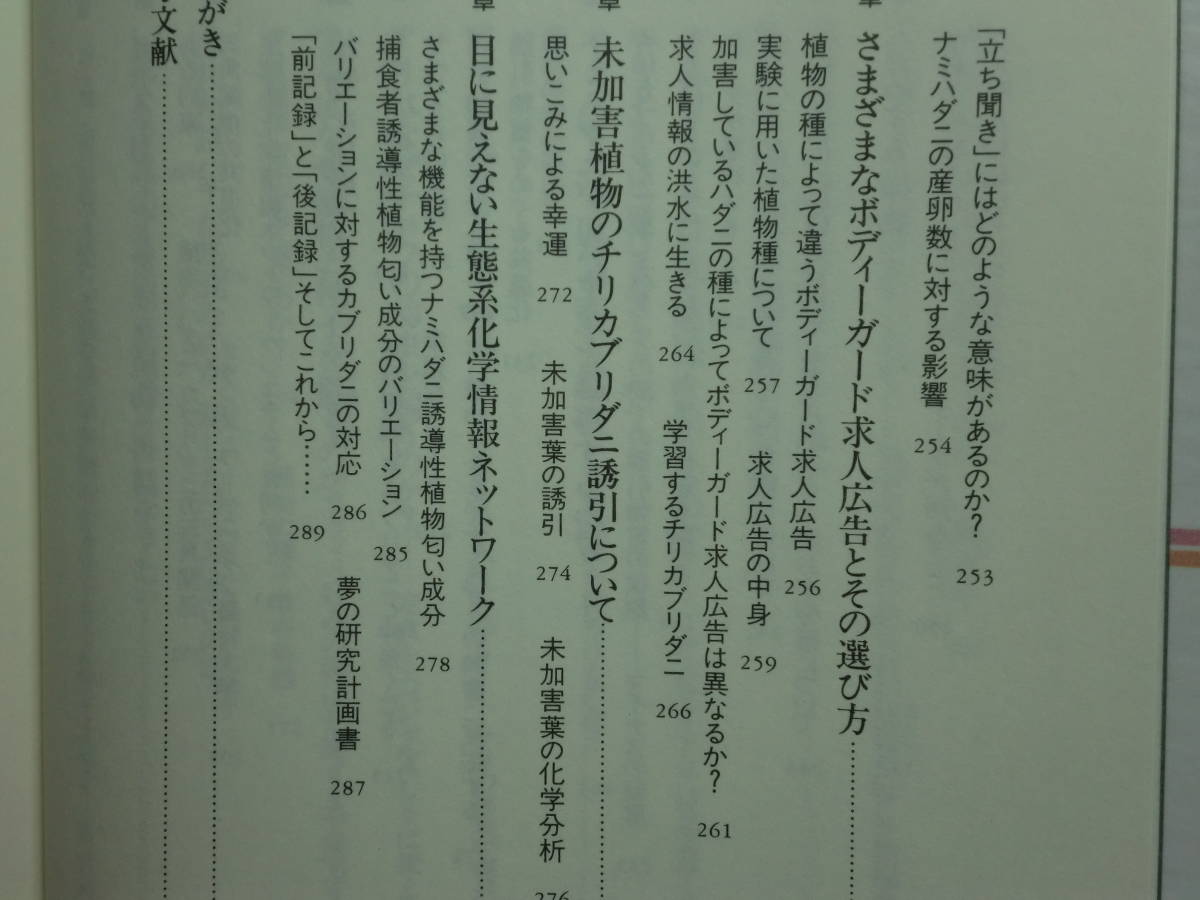 「立ち聞き」にはどのような意味があるのか? 253
ナミハダニの産卵数に対する影響 254
章 さまざまなボディーガード求人広告とその選び方……………
植物の種によって違うボディーガード求人広告 256
実験に用いた植物種について 257 求人広告の中身 259
加害しているハダニの種によってボディーガード求人広告は異なるか? 261
求人情報の洪水に生きる 264 学習するチリカブリダニ 266
章 未加害植物のチリカブリダニ誘引について……………
思いこみによる幸運 272 未加害葉の誘引 274 未加害葉の化学分析 276
章 目に見えない生態系化学情報ネットワーク……………
さまざまな機能を持つナミハダニ誘導性植物匂い成分 278
捕食者誘導性植物匂い成分のバリエーション 285
バリエーションに対するカブリダニの対応 286 夢の研究計画書 287
「前記録」と「後記録」そしてこれから…… 289
がき……………
文献……………